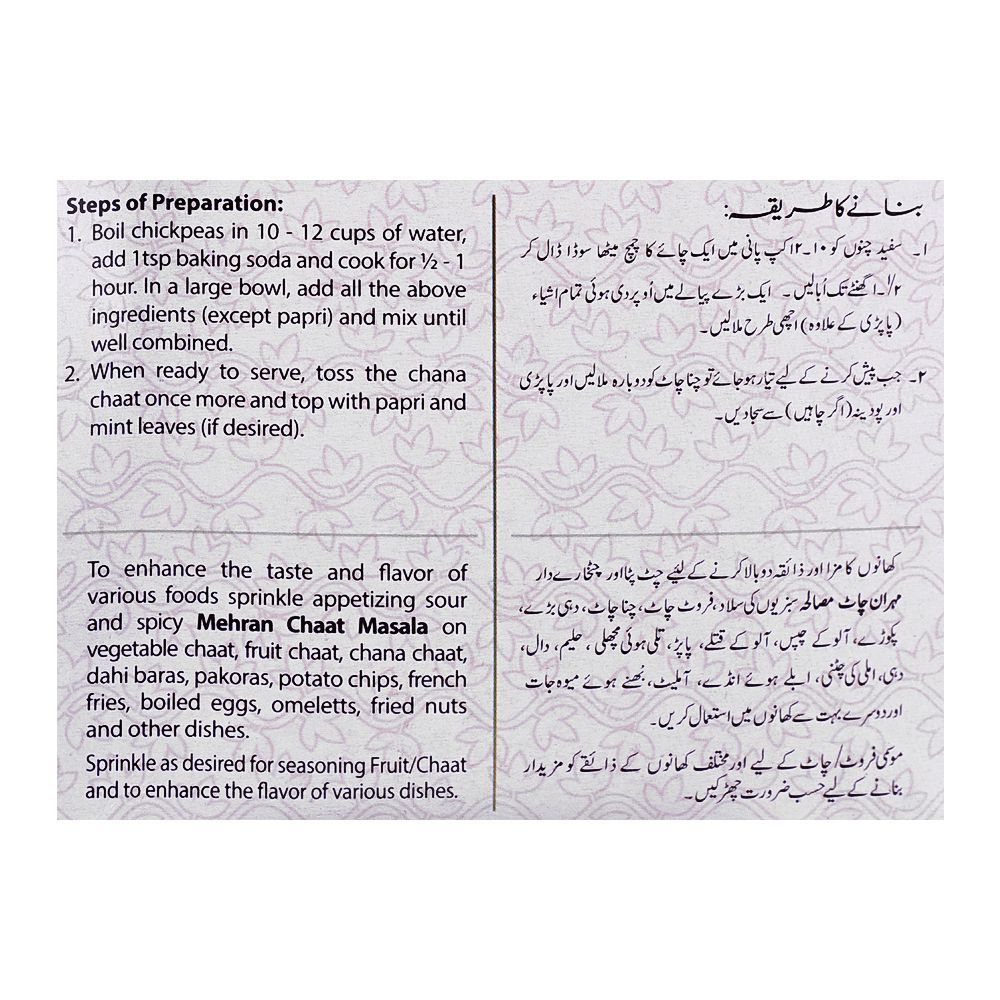 Steps of Preparation:
1. Boil chickpeas in 10 - 12 cups of water,
add 1tsp baking soda and cook for ½ - 1
hour. In a large bowl, add all the above
ingredients (except papri) and mix until
well combined.
2. When ready to serve, toss the chana
chaat once more and top with papri and
mint leaves (if desired).
To enhance the taste and flavor of
various foods sprinkle appetizing sour
and spicy Mehran Chaat Masala on
vegetable chaat, fruit chaat, chana chaat,
dahi baras, pakoras, potato chips, french
fries, boiled eggs, omeletts, fried nuts
and other dishes.
Sprinkle as desired for seasoning Fruit/Chaat
and to enhance the flavor of various dishes.
بنانے کا طریقہ:
۱۔ سفید چنوں کو ۱۰۔۱۲ کپ پانی میں ایک چائے کا چمچ میٹھا سوڈا ڈال کر
۱/۲۔۱ گھنٹے تک اُبالیں۔ ایک بڑے پیالے میں اُوپر دی ہوئی تمام اشیاء
(پاپڑی کے علاوہ) اچھی طرح ملالیں۔
۲۔ جب پیش کرنے کے لیے تیار ہو جائے تو چنا چاٹ کو دوبارہ ملالیں اور پاپڑی
اور پودینہ (اگر چاہیں) سے سجادیں۔
کھانوں کا مزا اور ذائقہ دوبالا کرنے کے لئیے چٹ پٹا اور چٹخارے دار
مہران چاٹ مصالحہ سبزیوں کی سلاد، فروٹ چاٹ، چنا چاٹ، دہی بڑے،
پکوڑے، آلو کے چپس، آلو کے قتلے، پاپڑ، تلی ہوئی مچھلی، حلیم، دال،
دہی، املی کی چٹنی، ابلے ہوئے انڈے، آملیٹ، بُھنے ہوئے میوہ جات
اور دوسرے بہت سے کھانوں میں استعمال کریں۔
موسمی فروٹ/ چاٹ کے لیے اور مختلف کھانوں کے ذائقے کو مزیدار
بنانے کے لیے حسب ضرورت چھڑکیں۔